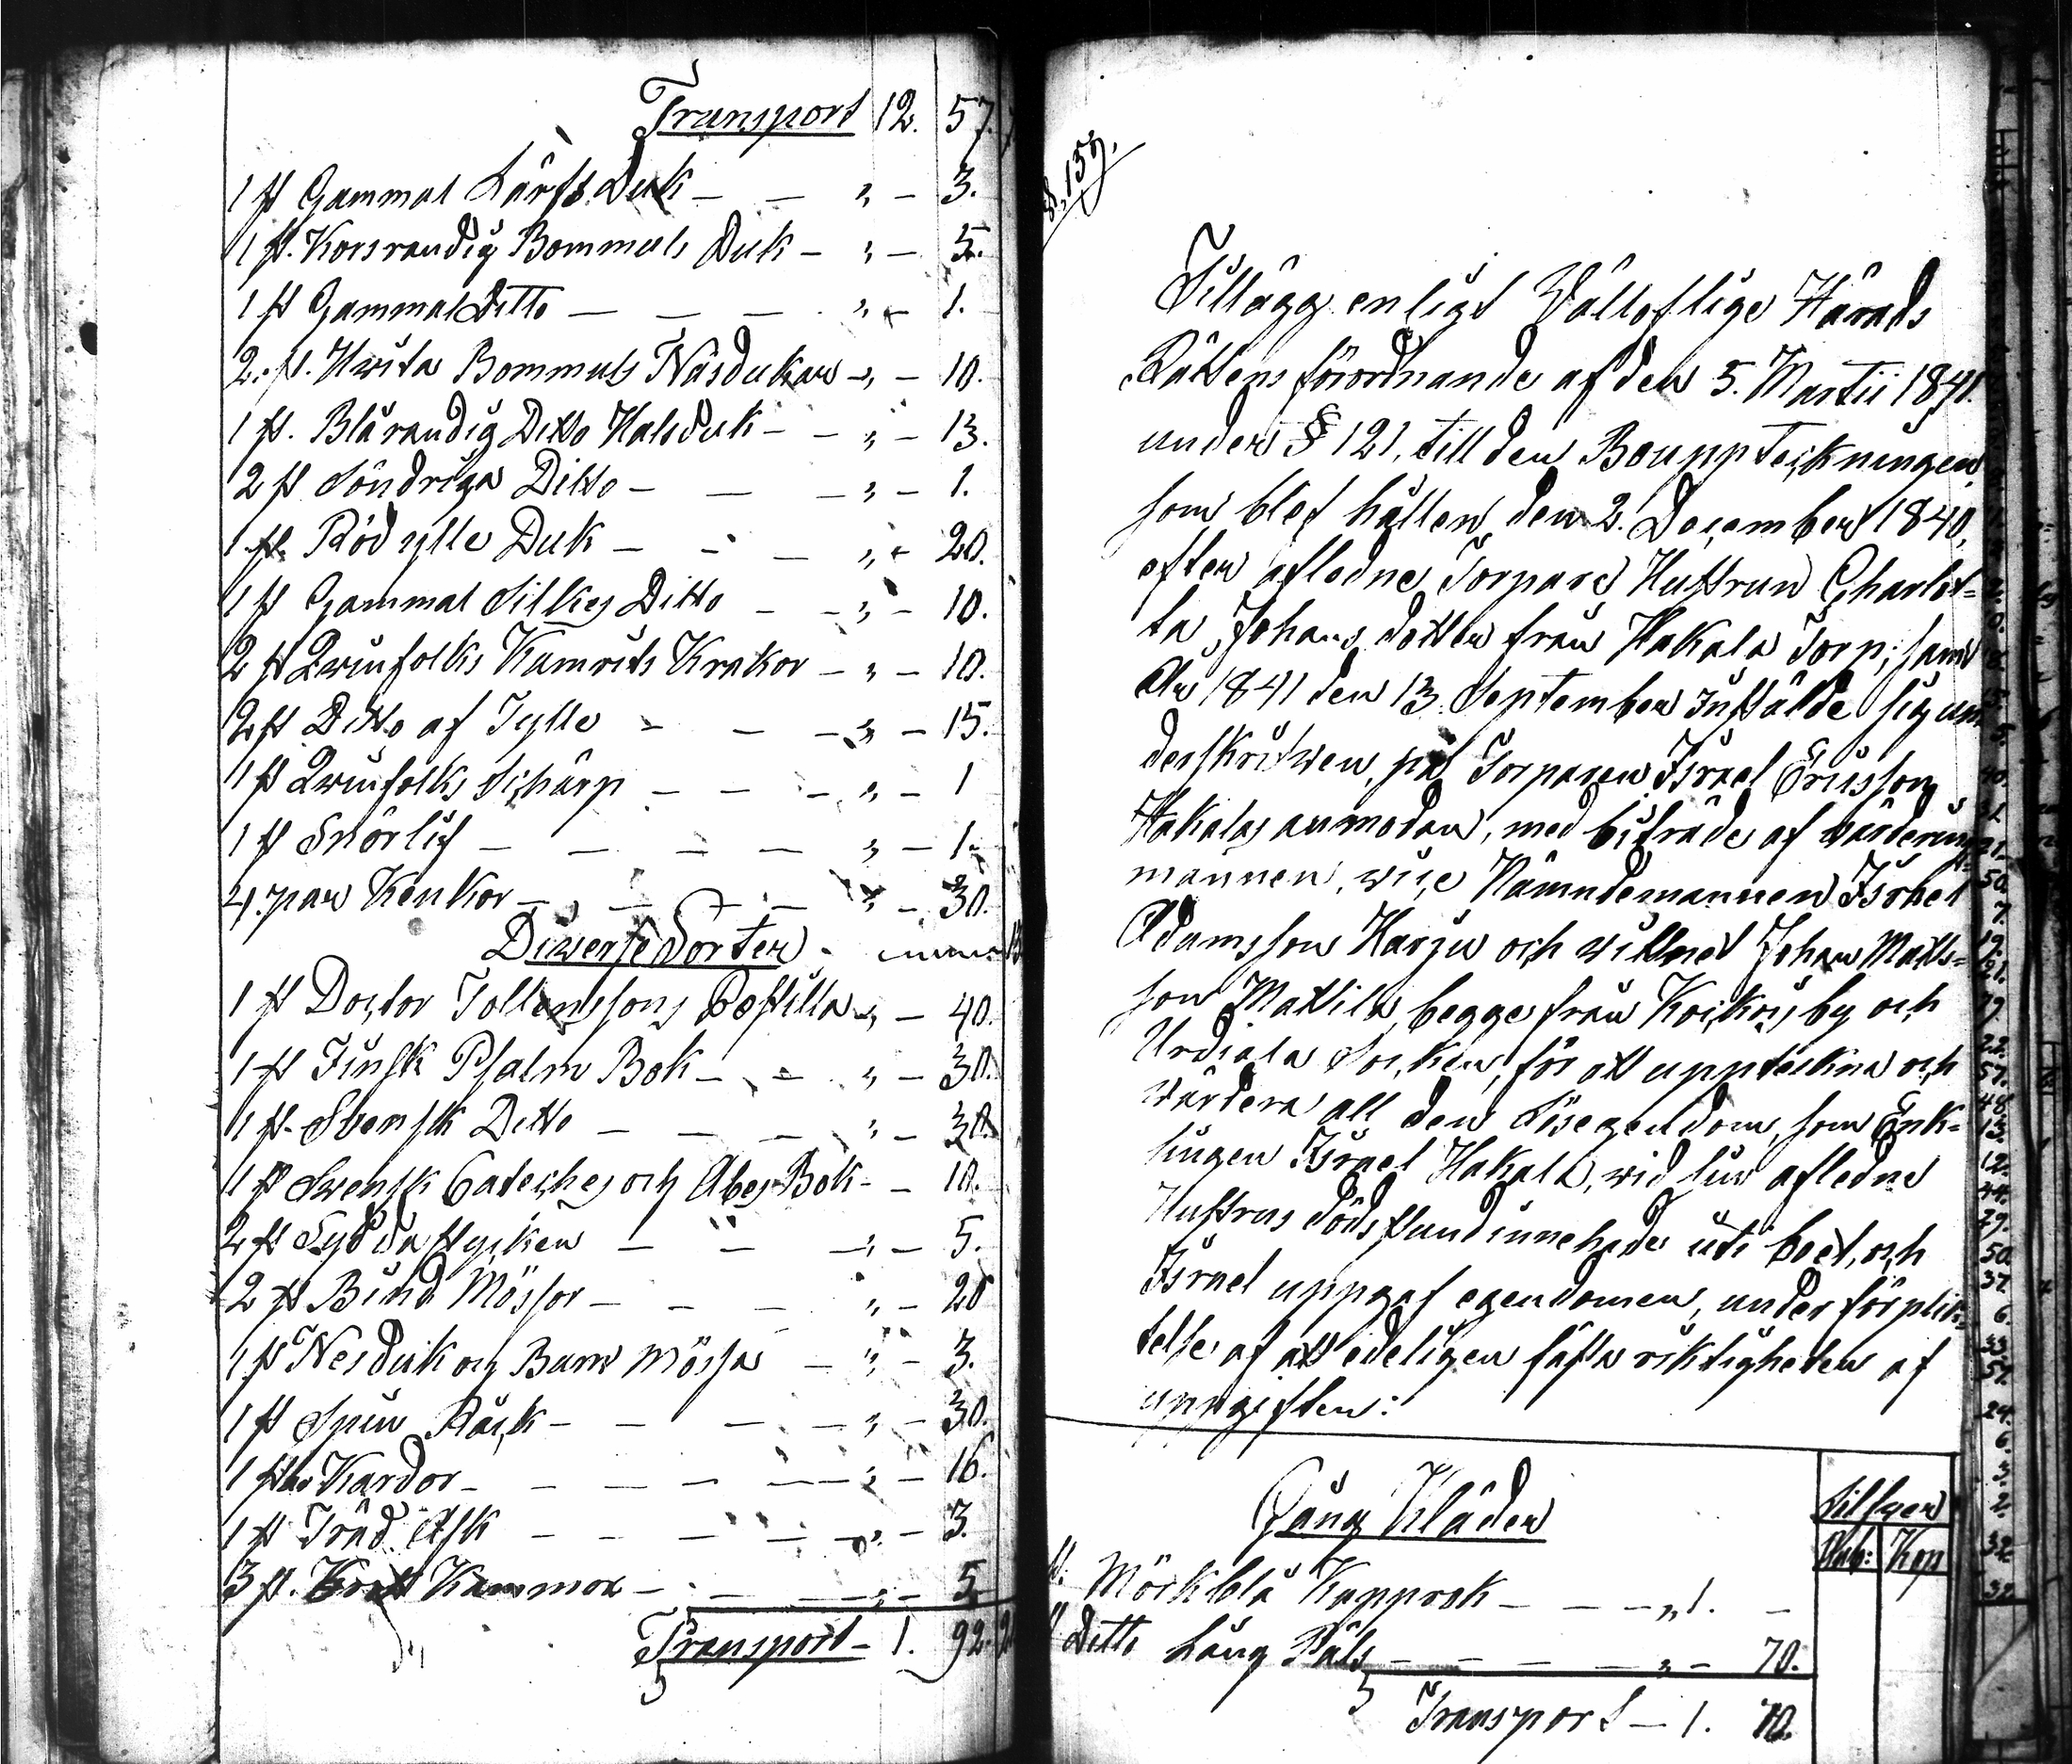 Transport 12. 57.
1 st Gammal Lärfts Duk — — „ — 3.
1 st. Korsrandig Bommuls Duk — „ — 5.
1 st Gammal Ditto — — — „ — 1.
2. st. Hwita Bommuls Näsdukar — „ — 10.
1 st. Blårandig Ditto Halsduk — — „ — 13.
2 st Söndriga Ditto — — — „ — 1.
1 st. Röd ylle Duk — — — „ — 20.
1 st Gammal Silkes Ditto — — „ — 10.
2 st Qwinfolks Kamrits Krakor — „ — 10.
2 st Ditto af Tylle — — — „ — 15.
1 st Qwinfolks Schärp — — — „ — 1
1 st Snörlif — — — — „ — 1.
4. par Kenkor — — — — „ — 30.
Diwerse Sorter
1 st Doctor Tollenssons Postilla „ — 40.
1 st Finsk Psalm Bok — — „ — 30.
1 st. Svensk Ditto — — — „ — 30.
1 st Swensk Cateches och Abes Bok — — 10.
2 st Sydda stycken — — — „ — 5.
2 st Bind Mössor — — — „ — 20
1 st Nesduk och Barns mössa — „ — 3.
1 st Spin Råck — — — — „ — 30.
1 Kardor — — — — „ — 16.
1 st Träd Ask — — — — „ — 3.
3 st. Kammar — — — „ — 5.
Transport — 1. 92.
8,159.
Tillägg enligt Vällofliga Härads
Rättens förordnande af den 5. Martii 1841.
under § 121, till den Bouppteckningen,
som blef hållen den 2. December 1840,
efter afledne Torpare Hustrun Charlot=
ta Johans dotter från Hakala Torp; samt
År 1841 den 13 September instälde sig un
derskrifwen, på Torparen Israel Ericsson
Hakalas anmodan, med biträde af wärderings
mannen, wice Nämndemannen Isrhel
Adamsson Harju och wittnet Johan Matts=
son Mattila, begge från Koikois by och
Urdiala Socken, för att uppteckna och
wärdera all den Lösegendom, som Enk=
lingen Israel Hakala, wid sin afledne
Hustrus dödsstund innehade uti boet, och
Israel uppgaf egendomen, under förplik=
telse af att edeligen fästa riktigheten af
uppgiften:
Gång Kläder
Silfwer
Rub: Kop
st. Mörkblå Kapprok — — — „ 1. —
st Ditto Lång Päls — — — — „ — 70.
Transport — 1. 70.